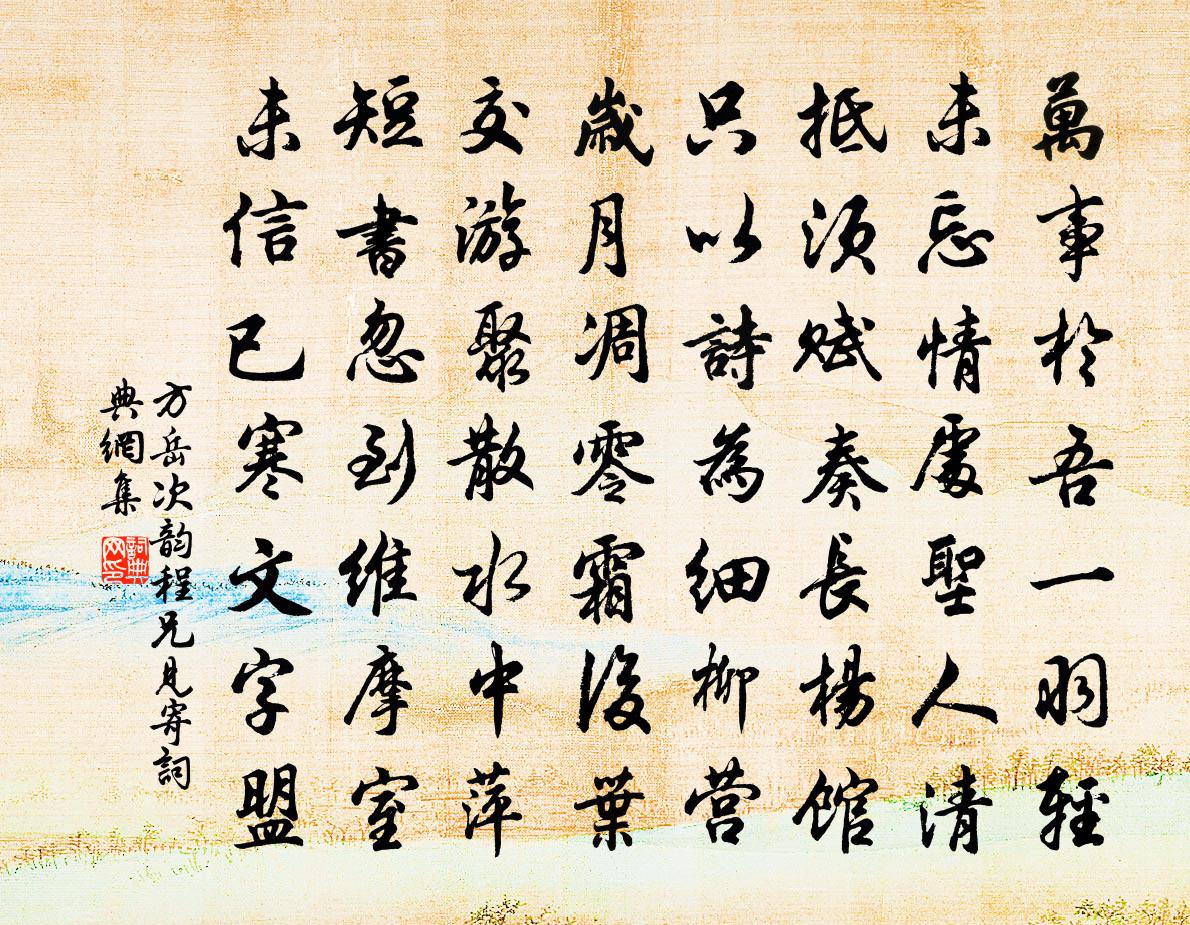 萬事於吾一羽輕
未忘情處聖人清
抵須賦奏長楊館
只以詩為細柳營
歲月凋零霜後葉
交游聚散水中萍
短書忽到維摩室
未信已寒文字盟
方岳次韵程兄見寄詞
典網集
詞典
网印